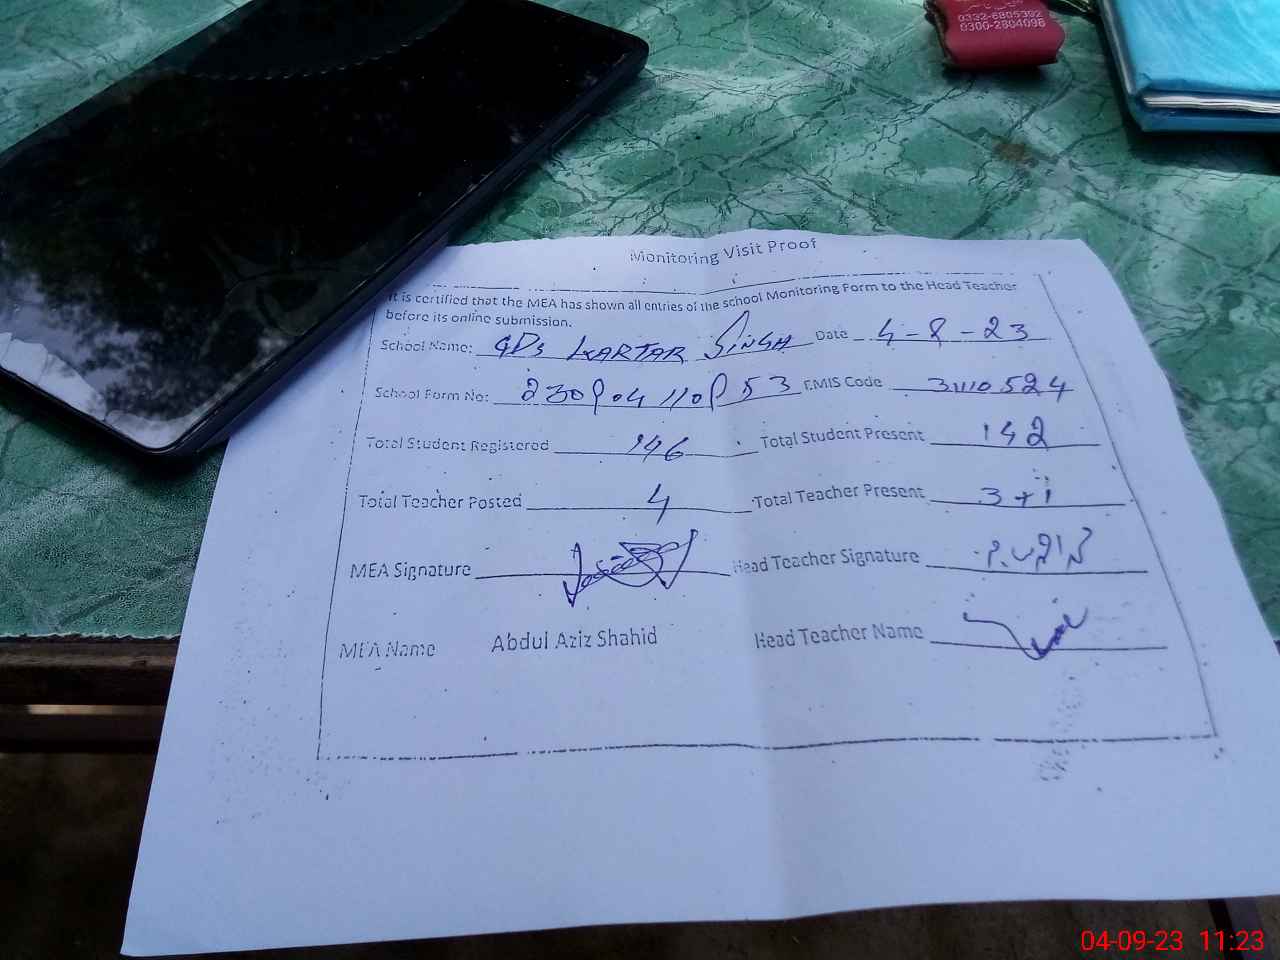 0332-6805392
0300-2804096
Monitoring Visit Proof
It is certified that the MEA has shown all entries of the school Monitoring Form to the Head Teacher
before its online submission.
School Name: GPS KARTAR SINGH Date 4-8-23
School Form No: EMIS Code 31110524
Total Student Registered 146 Total Student Present 142
Total Teacher Posted 4 Total Teacher Present 3+1
MEA Signature Head Teacher Signature
MEA Name Abdul Aziz Shahid Head Teacher Name
04-09-23 11:23